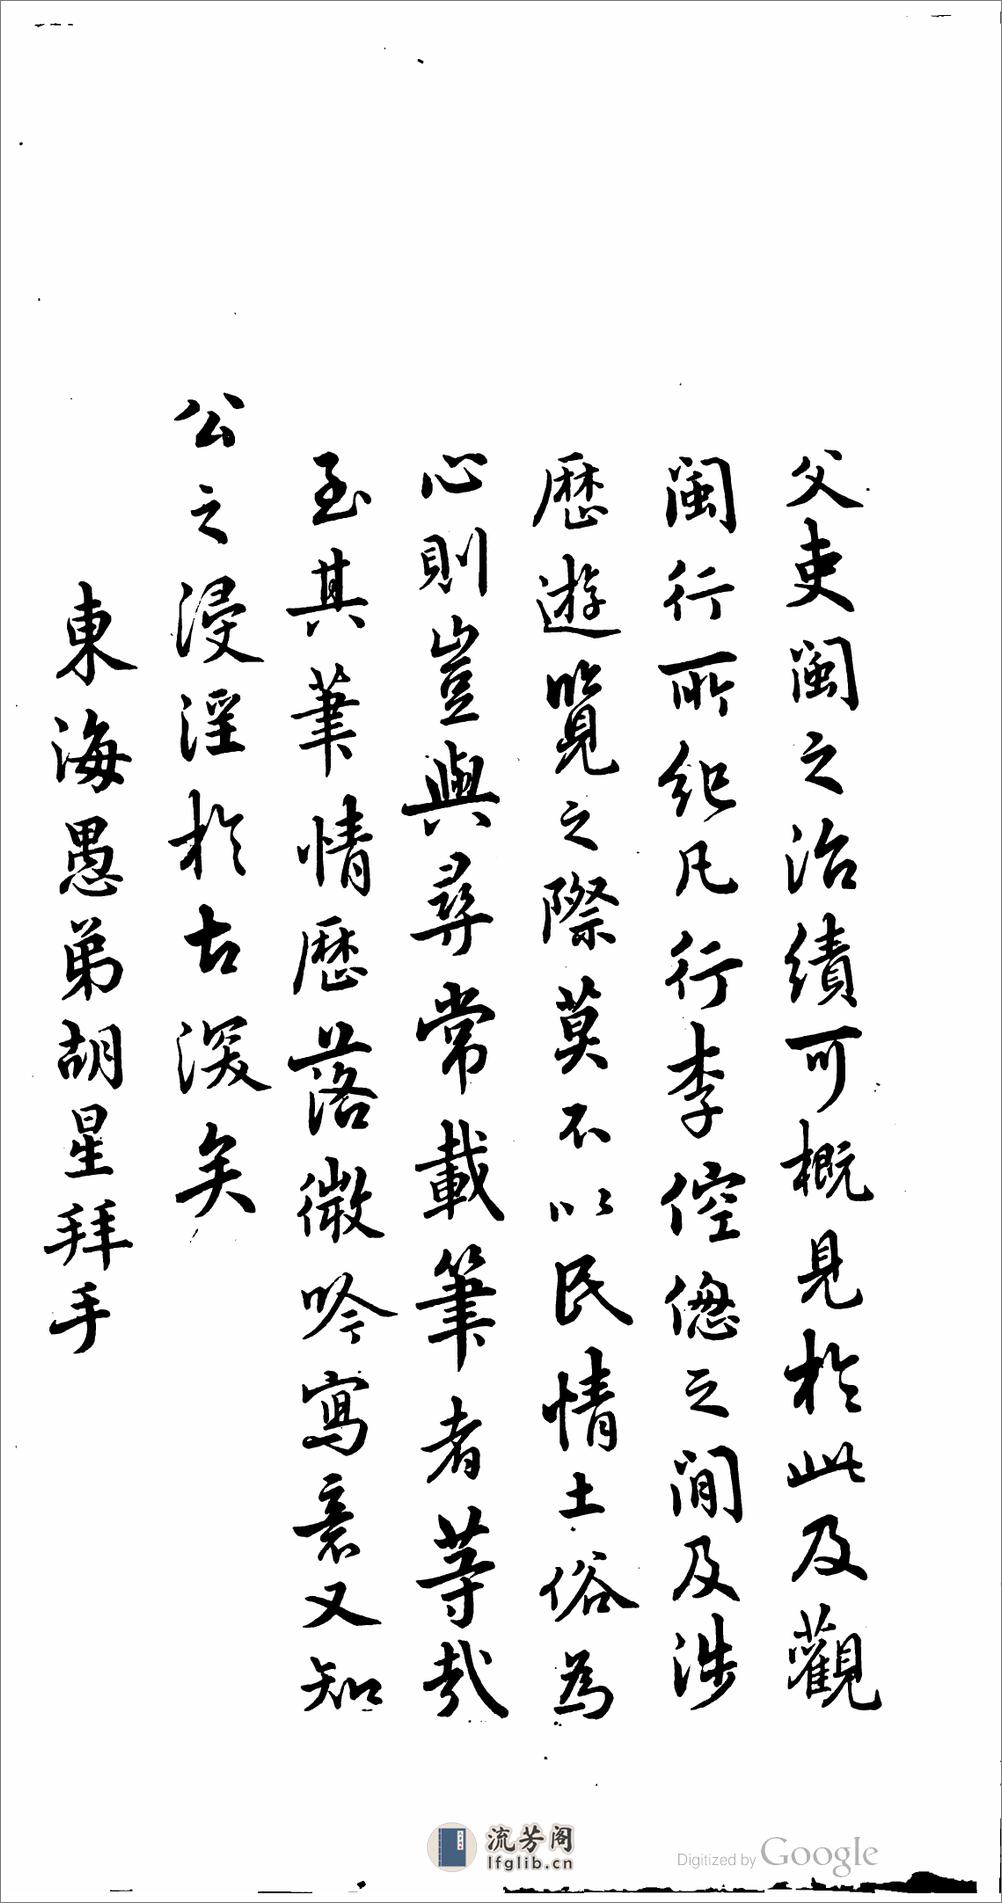 父吏閩之治績可概見於此及觀
閩行所紀凡行李倥偬之間及涉
歷遊覽之際莫不以民情土俗為
心則豈與尋常載筆者等哉
至其筆情歷落微吟寫意又知
公之浸淫於古深矣
東海愚弟胡星拜手
流芳阁
lfglib.cn
Digitized by Google